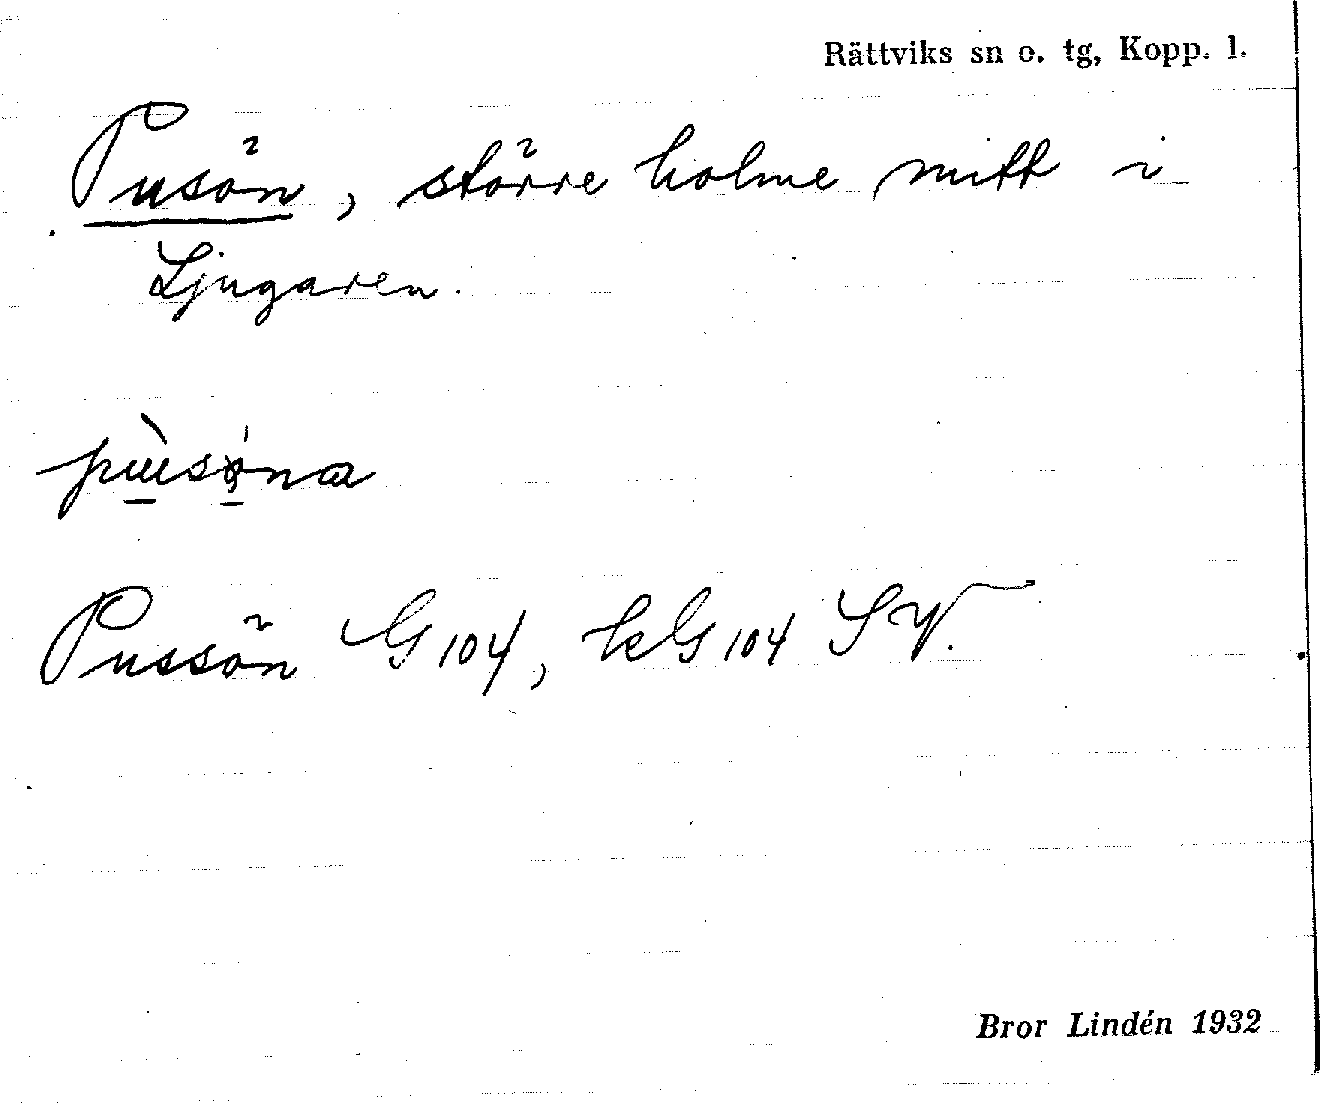 Rättviks sn o. tg, Kopp. l.
Pusön, större holme mitt i
Ljugaren.
Pussön G 104, kG 104 SV.
Bror Lindén 1932